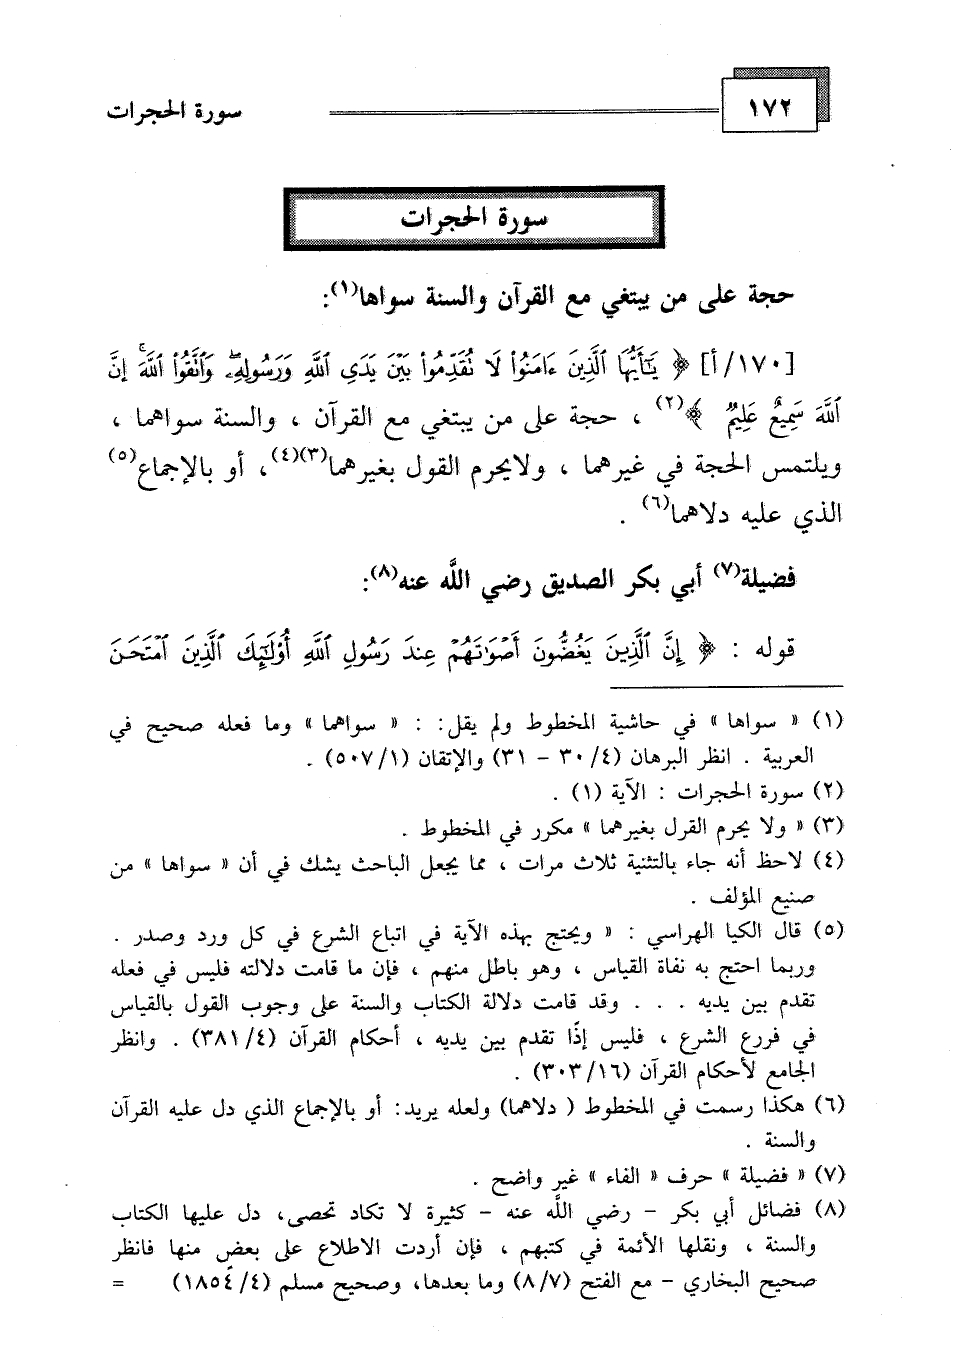 ١٧٢
سورة الحجرات
سورة الحجرات
حجة على من يبتغي مع القرآن والسنة سواها(١):
[١٧٠/أ] ﴿ يَٰٓأَيُّهَا ٱلَّذِينَ ءَامَنُوا۟ لَا تُقَدِّمُوا۟ بَيْنَ يَدَىِ ٱللَّهِ وَرَسُولِهِۦۖ وَٱتَّقُوا۟ ٱللَّهَۚ إِنَّ
ٱللَّهَ سَمِيعٌ عَلِيمٌ ﴾(٢) ، حجة على من يبتغي مع القرآن ، والسنة سواهما ،
ويلتمس الحجة في غيرهما ، ولايحرم القول بغيرهما(٣)(٤)، أو بالإجماع(٥)
الذي عليه دلاهما(٦) .
فضيلة(٧) أبي بكر الصديق رضي اللَّه عنه(٨):
قوله : ﴿ إِنَّ ٱلَّذِينَ يَغُضُّونَ أَصْوَٰتَهُمْ عِندَ رَسُولِ ٱللَّهِ أُو۟لَٰٓئِكَ ٱلَّذِينَ ٱمْتَحَنَ
(١) « سواها » في حاشية المخطوط ولم يقل: : « سواهما » وما فعله صحيح في
العربية . انظر البرهان (٣٠/٤ – ٣١) والإتقان (٥٠٧/١) .
(٢) سورة الحجرات : الآية (١) .
(٣) « ولا يحرم القرل بغيرهما » مكرر في المخطوط .
(٤) لاحظ أنه جاء بالتثنية ثلاث مرات ، مما يجعل الباحث يشك في أن « سواها » من
صنيع المؤلف .
(٥) قال الكيا الهراسي : « ويحتج بهذه الآية في اتباع الشرع في كل ورد وصدر .
وربما احتج به نفاة القياس ، وهو باطل منهم ، فإن ما قامت دلالته فليس في فعله
تقدم بين يديه . . . وقد قامت دلالة الكتاب والسنة على وجوب القول بالقياس
في فررع الشرع ، فليس إذًا تقدم بين يديه ، أحكام القرآن (٣٨١/٤) . وانظر
الجامع لأحكام القرآن (٣٠٣/١٦) .
(٦) هكذا رسمت في المخطوط ( دلاهما) ولعله يريد: أو بالإجماع الذي دل عليه القرآن
والسنة .
(٧) « فضيلة » حرف « الفاء » غير واضح .
(٨) فضائل أبي بكر – رضي اللَّه عنه – كثيرة لا تكاد تحصى، دل عليها الكتاب
والسنة ، ونقلها الأئمة في كتبهم ، فإن أردت الاطلاع على بعضٍ منها فانظر
صحيح البخاري – مع الفتح (٨/٧) وما بعدها، وصحيح مسلم (١٨٥٤/٤) =